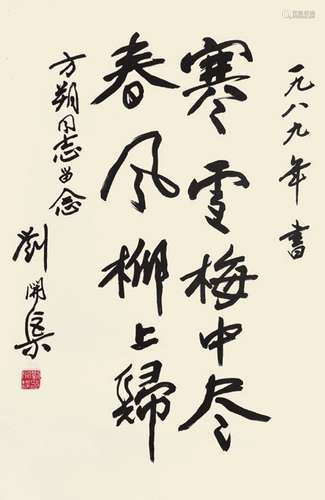 一九八九年書
寒雪梅中尽
春风柳上歸
方朔同志留念
劉開渠